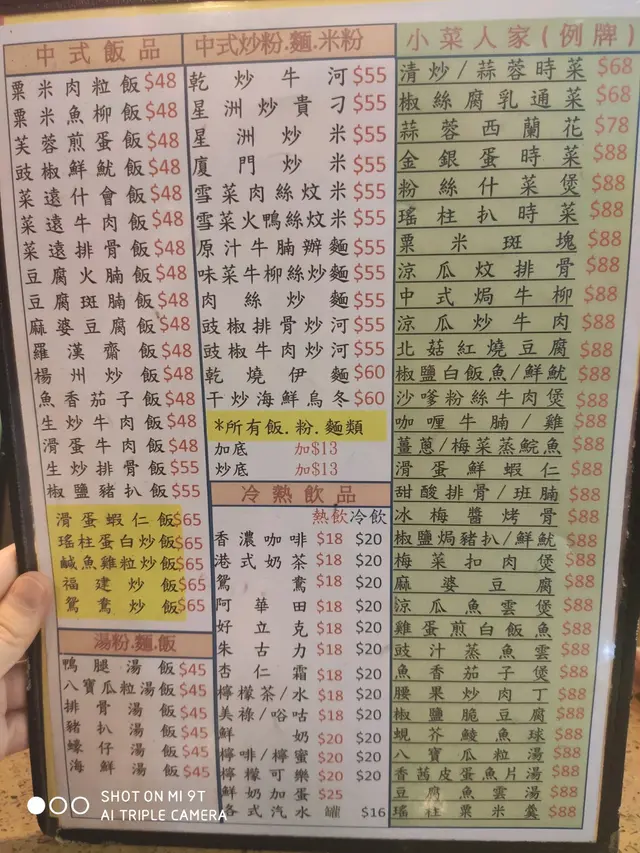 中式飯品
粟米肉粒飯$48
粟米魚柳飯$48
芙蓉煎蛋飯$48
豉椒鮮魷飯$48
菜遠什會飯$48
菜遠牛肉飯$48
菜遠排骨飯$48
豆腐火腩飯$48
豆腐斑腩飯$48
麻婆豆腐飯$48
羅漢齋飯$48
楊州炒飯$48
魚香茄子飯$48
生炒牛肉飯$48
滑蛋牛肉飯$48
生炒排骨飯$55
椒鹽豬扒飯$55
滑蛋蝦仁飯$65
瑤柱蛋白炒飯$65
鹹魚雞粒炒飯$65
福建炒飯$65
鴛鴦炒飯$65
湯粉.麵.飯
鴨腿湯飯$45
八寶瓜粒湯飯$45
排骨湯飯$45
豬扒湯飯$45
蠔仔湯飯$45
海鮮湯飯$45
中式炒粉.麵.米粉
乾炒牛河$55
星洲炒貴刁$55
星洲炒米$55
廈門炒米$55
雪菜肉絲炆米$55
雪菜火鴨絲炆米$55
原汁牛腩辦麵$55
味菜牛柳絲炒麵$55
肉絲炒麵$55
豉椒排骨炒河$55
豉椒牛肉炒河$55
乾燒伊麵$60
干炒海鮮烏冬$60
*所有飯.粉.麵類
加底 加$13
炒底 加$13
冷熱飲品
熱飲 冷飲
香濃咖啡 $18 $20
港式奶茶 $18 $20
鴛鴦 $18 $20
阿華田 $18 $20
好立克 $18 $20
朱古力 $18 $20
杏仁霜 $18 $20
檸檬茶/水 $18 $20
美祿/唂咕 $18 $20
鮮奶 $20 $20
檸啡/檸蜜 $20 $20
檸檬可樂 $20 $20
鮮奶加蛋 $25
各式汽水 罐 $16
小菜人家(例牌)
清炒/蒜蓉時菜 $68
椒絲腐乳通菜 $68
蒜蓉西蘭花 $78
金銀蛋時菜 $88
粉絲什菜煲 $88
瑤柱扒時菜 $88
粟米斑塊 $88
涼瓜炆排骨 $88
中式焗牛柳 $88
涼瓜炒牛肉 $88
北菇紅燒豆腐 $88
椒鹽白飯魚/鮮魷 $88
沙嗲粉絲牛肉煲 $88
咖喱牛腩/雞 $88
薑蔥/梅菜蒸鯇魚 $88
滑蛋鮮蝦仁 $88
甜酸排骨/班腩 $88
冰梅醬烤骨 $88
椒鹽焗豬扒/鮮魷 $88
梅菜扣肉煲 $88
麻婆豆腐 $88
涼瓜魚雲煲 $88
雞蛋煎白飯魚 $88
豉汁蒸魚雲 $88
魚香茄子煲 $88
腰果炒肉丁 $88
椒鹽脆豆腐 $88
蜆芥鯪魚球 $88
八寶瓜粒湯 $88
香茜皮蛋魚片湯 $88
豆腐魚雲湯 $88
瑤柱粟米羹 $88
SHOT ON MI 9T
AI TRIPLE CAMERA